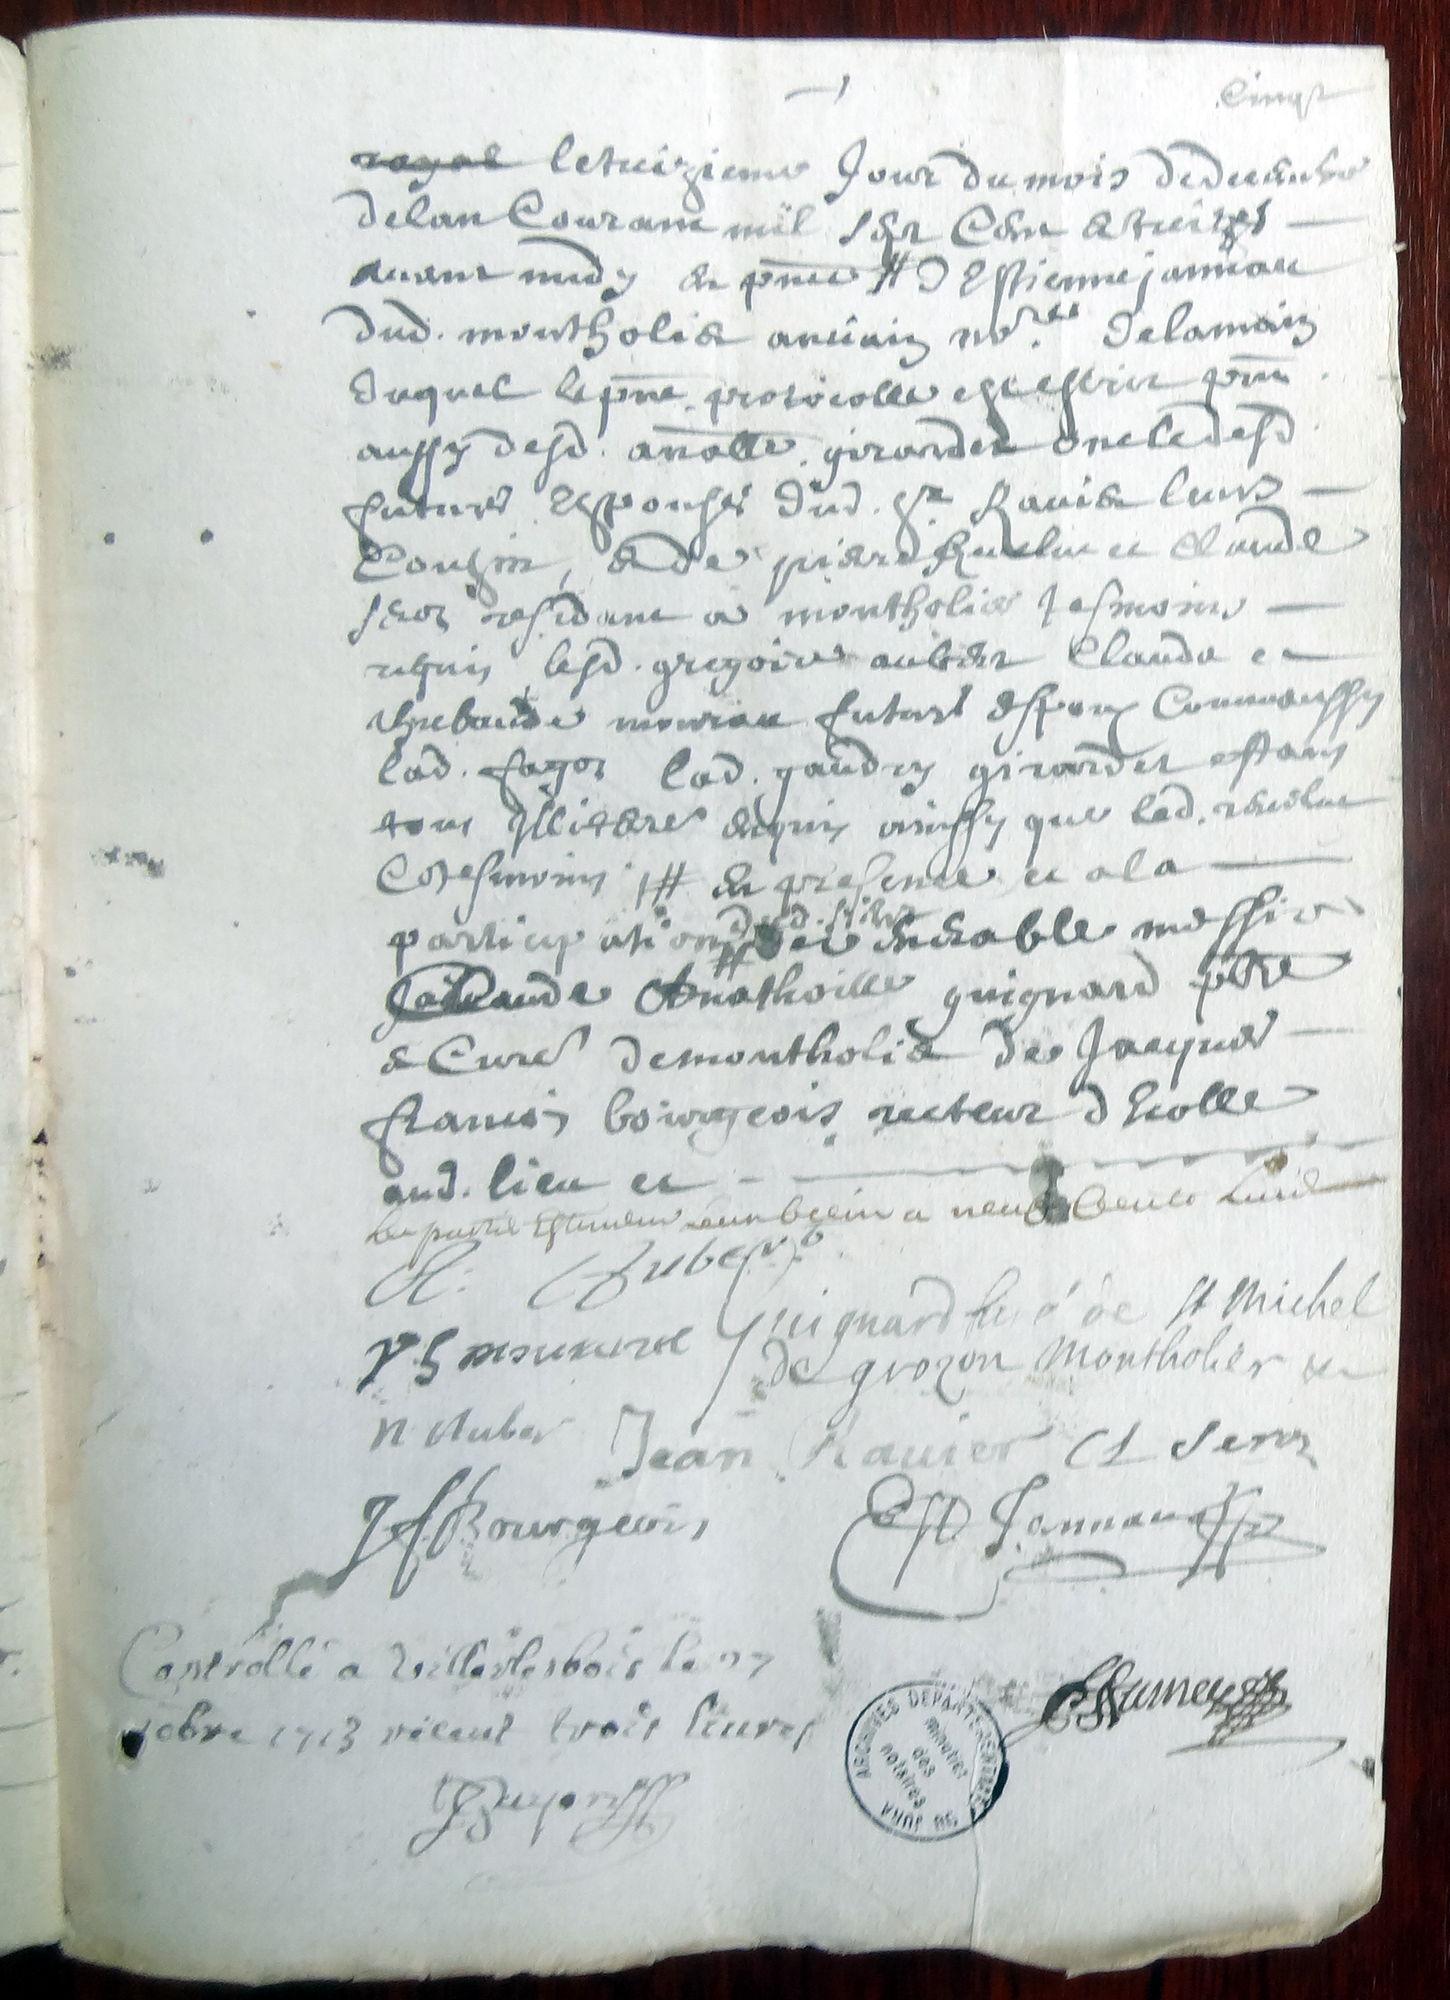 Cinq
royal le treizieme Jour du mois de decembre
de lan Courant mil sept Cent et treize
avant midy en pnce # d Estienne jannau
dud. montholier ancien no.re de la main
duquel le pnt. protocolle est escrit pnt
aussy desd. anatlle. girardet oncle desd
futures Espouses dud. Sr Ravier leurs
Cousin, et de pierre et Claude
seroz residant a montholier tesmoins
requis lesd. gregoire aubert Claude et
thiebaude moureau futurs espoux Comme aussy
lad. fagot lad. gaudry girardet estans
tous Illitere enquis ainssy que led.
Co tesmoins # en presence et a la
participation dud. sieur # venerable messire
Claude Anathoille guignard pbre
et Curé de montholier de Jacques
francois bourgeois recteur d Ecolle
aud. lieu et
la partie Estimeur leur bien a neuf Cents livres
Cl. Aubert
guignard curé de St Michel
de grozon Montholier &c
N Auber Jean Ravier Cl Seroz
J f Bourgeois Est Jannau
Controllé a Villerserbois le 27
xbre 1713 receut trois livres
ARCHIVES DEPARTEMENTALES DU JURA
minutier
des
notaires